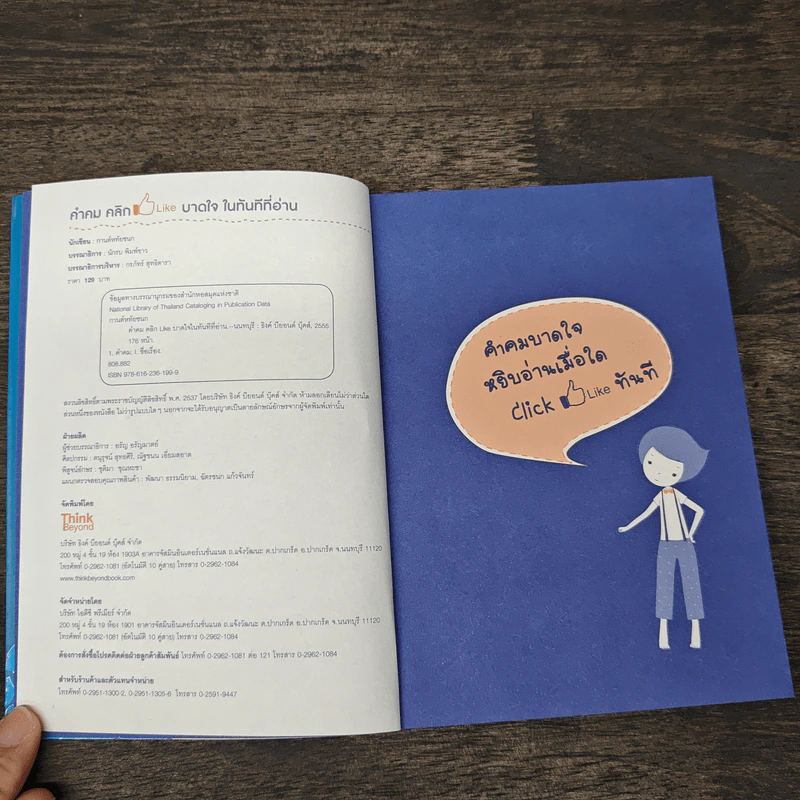 คำคม คลิก Like บาดใจ ในทันทีที่อ่าน
นักเขียน : กานต์หทัยชนก
บรรณาธิการ : นักรบ พิมพ์ขาว
บรรณาธิการบริหาร : กรภัทร์ สุทธิดารา
ราคา 129 บาท
ข้อมูลทางบรรณานุกรมของสำนักหอสมุดแห่งชาติ
National Library of Thailand Cataloging in Publication Data
กานต์หทัยชนก
คำคม คลิก Like บาดใจในทันทีที่อ่าน.--นนทบุรี : ธิงค์ บียอนด์ บุ๊คส์, 2555
176 หน้า.
1. คำคม. I. ชื่อเรื่อง.
808.882
ISBN 978-616-236-199-9
สงวนลิขสิทธิ์ตามพระราชบัญญัติลิขสิทธิ์ พ.ศ. 2537 โดยบริษัท ธิงค์ บียอนด์ บุ๊คส์ จำกัด ห้ามลอกเลียนไม่ว่าส่วนใด
ส่วนหนึ่งของหนังสือ ไม่ว่ารูปแบบใด ๆ นอกจากจะได้รับอนุญาตเป็นลายลักษณ์อักษรจากผู้จัดพิมพ์เท่านั้น
ฝ่ายผลิต
ผู้ช่วยบรรณาธิการ : อรัญ อรัญมาตย์
ศิลปกรรม : ดนุรุจน์ สุทธศิริ, ณัฐชนน เอี่ยมสอาด
พิสูจน์อักษร : ชุติมา ชุณหะชา
แผนกตรวจสอบคุณภาพสินค้า : พัฒนา ธรรมนิยาม, ฉัตรชนก แก้วจันทร์
จัดพิมพ์โดย
Think
Beyond
บริษัท ธิงค์ บียอนด์ บุ๊คส์ จำกัด
200 หมู่ 4 ชั้น 19 ห้อง 1903A อาคารจัสมินอินเตอร์เนชั่นแนล ถ.แจ้งวัฒนะ ต.ปากเกร็ด อ.ปากเกร็ด จ.นนทบุรี 11120
โทรศัพท์ 0-2962-1081 (อัตโนมัติ 10 คู่สาย) โทรสาร 0-2962-1084
www.thinkbeyondbook.com
จัดจำหน่ายโดย
บริษัท ไอดีซี พรีเมียร์ จำกัด
200 หมู่ 4 ชั้น 19 ห้อง 1901 อาคารจัสมินอินเตอร์เนชั่นแนล ถ.แจ้งวัฒนะ ต.ปากเกร็ด อ.ปากเกร็ด จ.นนทบุรี 11120
โทรศัพท์ 0-2962-1081 (อัตโนมัติ 10 คู่สาย) โทรสาร 0-2962-1084
ต้องการสั่งซื้อโปรดติดต่อฝ่ายลูกค้าสัมพันธ์ โทรศัพท์ 0-2962-1081 ต่อ 121 โทรสาร 0-2962-1084
สำหรับร้านค้าและตัวแทนจำหน่าย
โทรศัพท์ 0-2951-1300-2, 0-2951-1305-6 โทรสาร 0-2591-9447
คำคมบาดใจ
หยิบอ่านเมื่อใด
Click Like ทันที